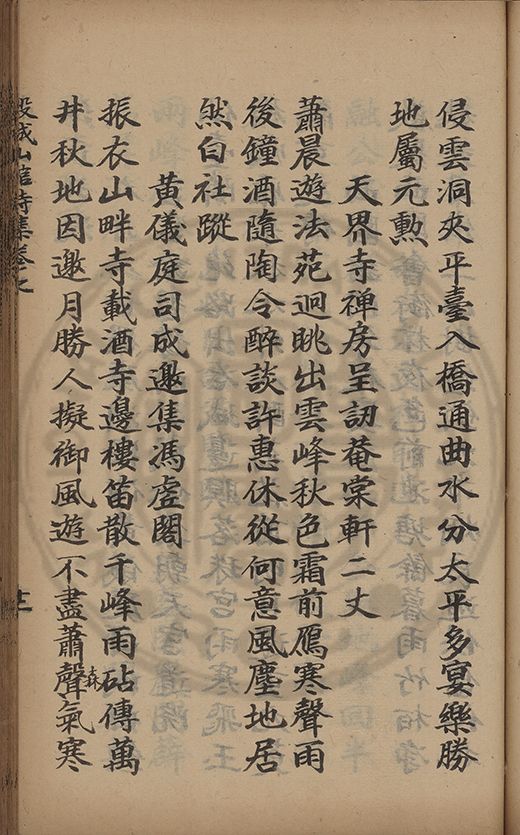 侵雲洞夾平臺入橋通曲水分太平多宴樂勝
地屬元勲
天界寺禅房呈訒菴棠軒二丈
蕭晨遊法苑迥眺出雲峰秋色霜前鴈寒聲雨
後鐘酒隨陶令醉談許惠休從何意風塵地居
然白社蹤
黄儀庭司成邀集馮虛閣
振衣山畔寺載酒寺邊樓笛散千峰雨砧傳萬
井秋地因邀月勝人擬御風遊不盡蕭聲氣寒
森
山館詩集卷之
廿一